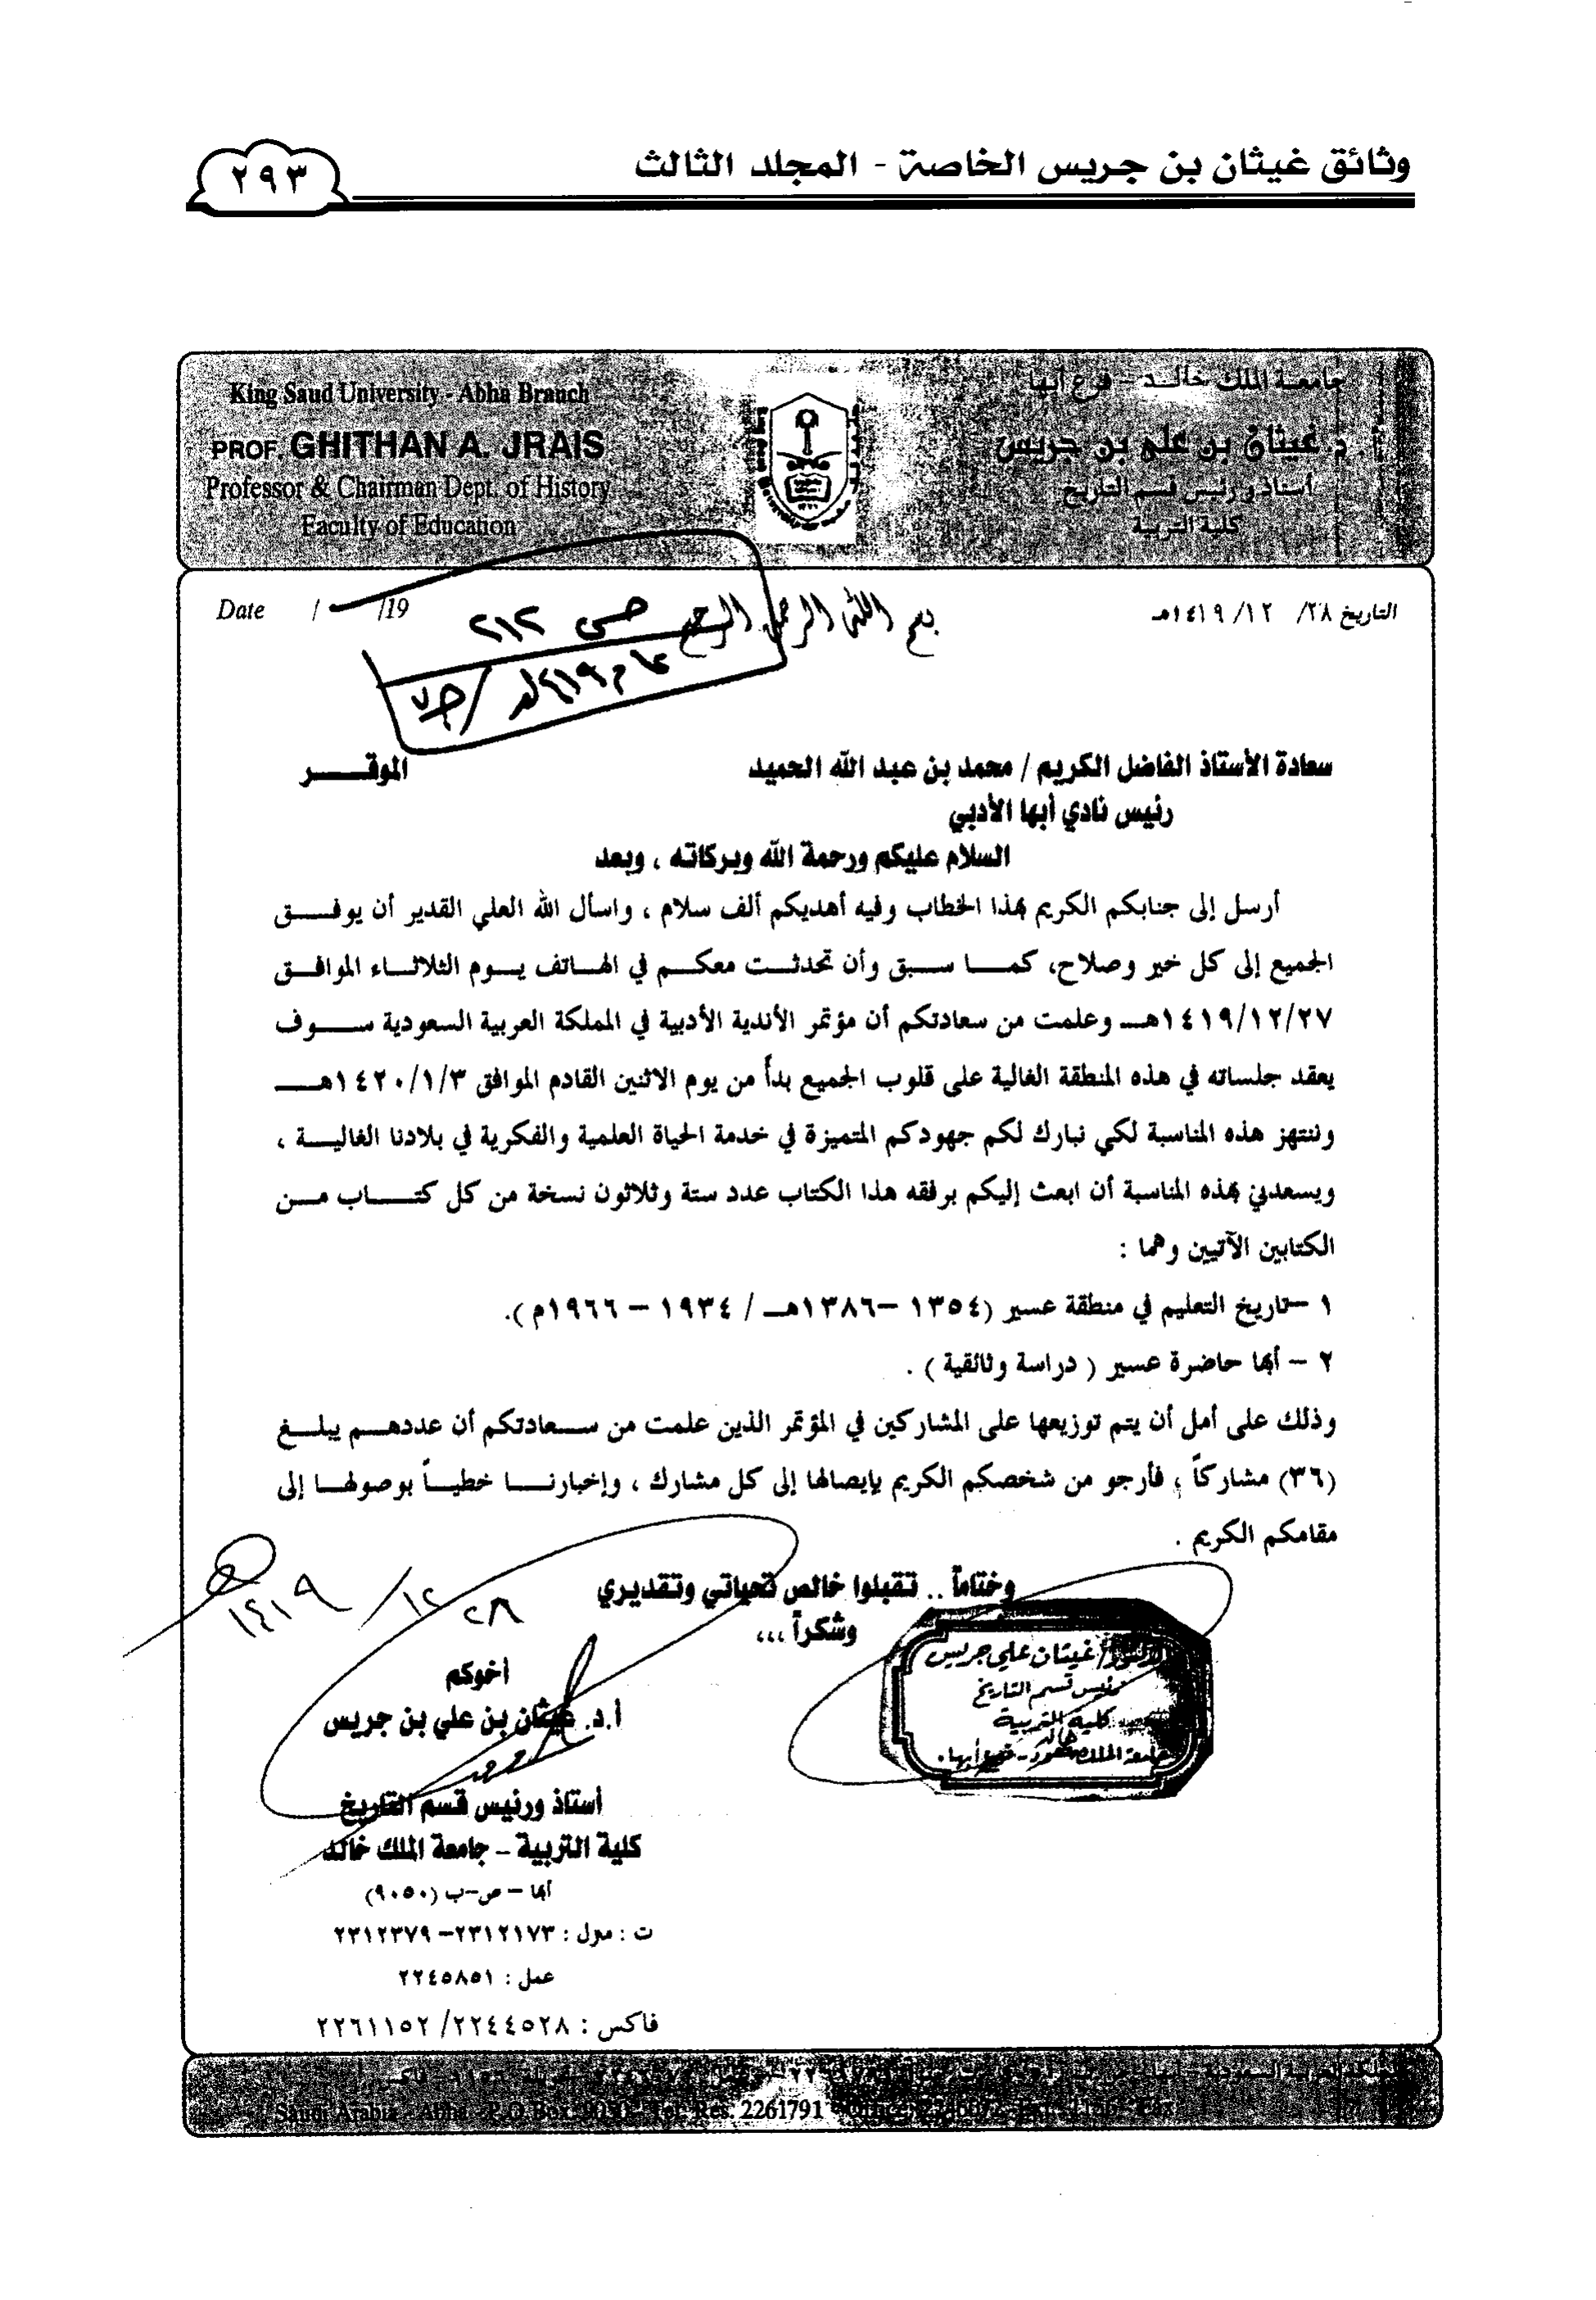 وثائق غيثان بن جريس الخاصة - المجلد الثالث
٢٩٣
King Saud University - Abha Branch
PROF. GHITHAN A. JRAIS
Professor & Chairman Dept. of History
Faculty of Education
جامعة الملك خالد - فرع أبها
أ.د. غيثان بن علي بن جريس
أستاذ ورئيس قسم التاريخ
كلية التربية
التاريخ ٢٨/ ١٢/ ١٤١٩هـ
بسم الله الرحمن الرحيم
Date / /19
سعادة الأستاذ الفاضل الكريم / محمد بن عبد الله الحميد الموقـــــر
رئيس نادي أبها الأدبي
السلام عليكم ورحمة الله وبركاته ، وبعد
أرسل إلى جنابكم الكريم بهذا الخطاب وفيه أهديكم ألف سلام ، واسأل الله العلي القدير أن يوفـــــق
الجميع إلى كل خير وصلاح، كمـــا ســـبق وأن تحدثـــت معكـــم في الهـــاتف يـــوم الثلاثـــاء الموافـــق
١٤١٩/١٢/٢٧هـــ وعلمت من سعادتكم أن مؤتمر الأندية الأدبية في المملكة العربية السعودية ســـــوف
يعقد جلساته في هذه المنطقة الغالية على قلوب الجميع بدأ من يوم الاثنين القادم الموافق ١٤٢٠/١/٣هـــــ
وننتهز هذه المناسبة لكي نبارك لكم جهودكم المتميزة في خدمة الحياة العلمية والفكرية في بلادنا الغاليـــة ،
ويسعدني بهذه المناسبة أن ابعث إليكم برفقه هذا الكتاب عدد ستة وثلاثون نسخة من كل كتـــــاب مـــن
الكتابين الآتيين وهما :
١ –تاريخ التعليم في منطقة عسير (١٣٥٤ –١٣٨٦هـــ / ١٩٣٤ – ١٩٦٦م ).
٢ – أبها حاضرة عسير ( دراسة وثائقية ) .
وذلك على أمل أن يتم توزيعها على المشاركين في المؤتمر الذين علمت من ســـعادتكم أن عددهـــم يبلـــغ
(٣٦) مشاركاً ، فأرجو من شخصكم الكريم بإيصالها إلى كل مشارك ، وإخبارنـــا خطيـــاً بوصولهـــا إلى
مقامكم الكريم .
وختاماً .. تقبلوا خالص تحياتي وتقديري
وشكراً ،،،
٢٨ / ١٢ / ١٤١٩هـ
أخوكم
أ.د. غيثان بن علي بن جريس
أستاذ ورئيس قسم التاريخ
كلية التربية – جامعة الملك خالد
أبها – ص-ب (٩٠٥٠)
ت : منزل : ٢٣١٢١٧٣–٢٣١٢٣٧٩
عمل : ٢٢٤٥٨٥١
فاكس : ٢٢٤٤٥٢٨/ ٢٢٦١١٥٢
غيثان علي جريس
رئيس قسم التاريخ
كلية التربية
Saudi Arabia - Abha - P.O Box Tel. Res. 2261791